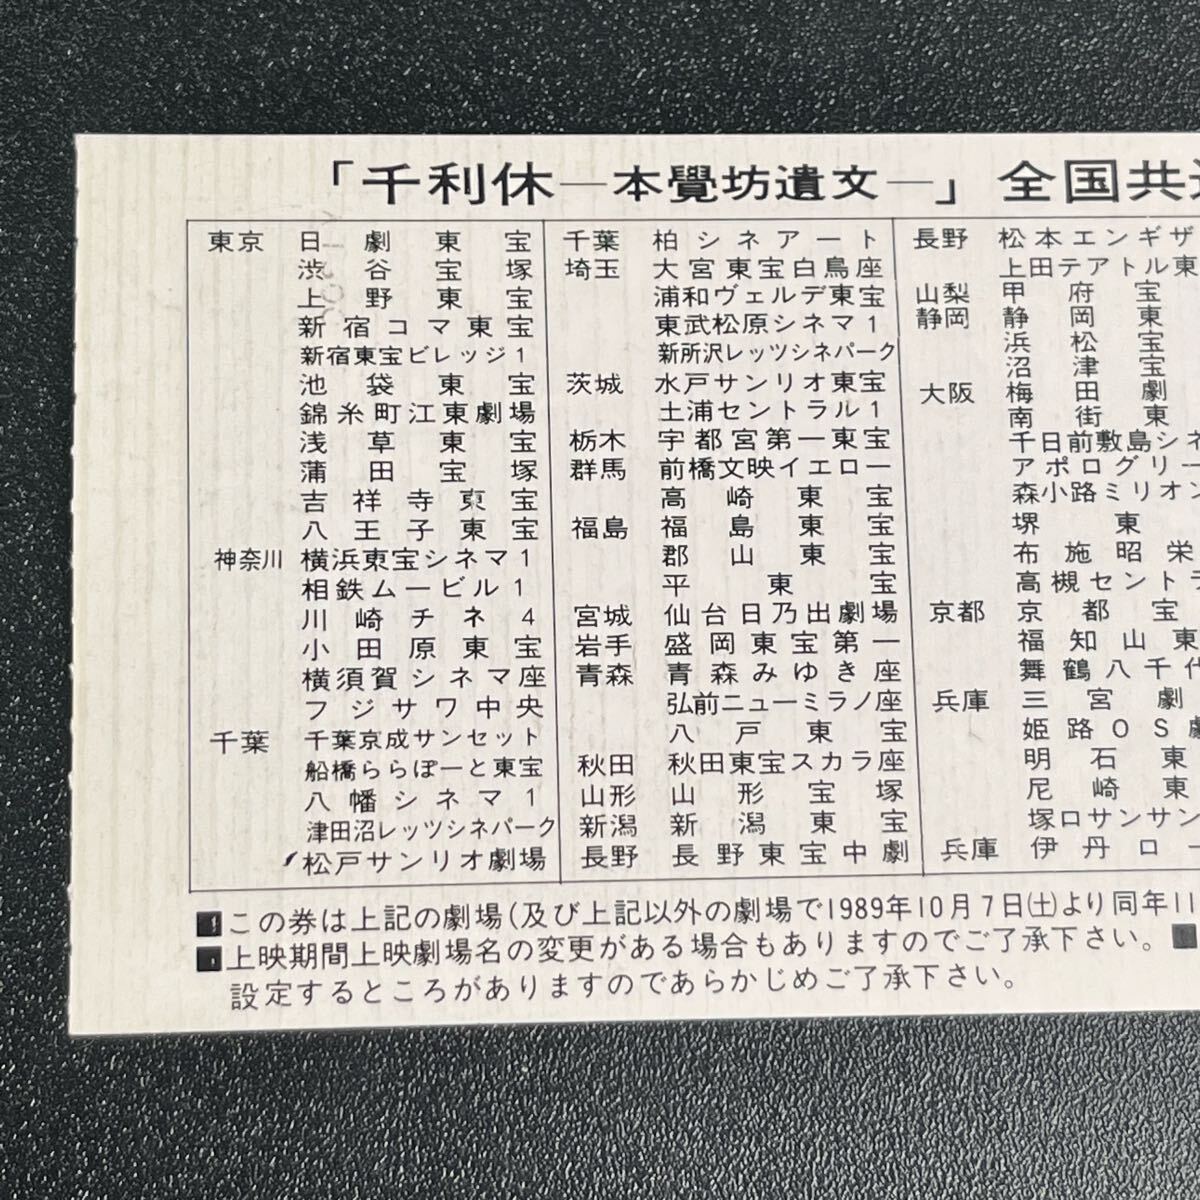 「千利休—本覺坊遺文—」全国共
東京 日劇東宝
渋谷宝塚
上野東宝
新宿コマ東宝
新宿東宝ビレッジ1
池袋東宝
錦糸町江東劇場
浅草東宝
蒲田宝塚
吉祥寺東宝
八王子東宝
神奈川 横浜東宝シネマ1
相鉄ムービル1
川崎チネ4
小田原東宝
横須賀シネマ座
フジサワ中央
千葉 千葉京成サンセット
船橋ららぽーと東宝
八幡シネマ1
津田沼レッツシネパーク
松戸サンリオ劇場
千葉 柏シネアート
埼玉 大宮東宝白鳥座
浦和ヴェルデ東宝
東武松原シネマ1
新所沢レッツシネパーク
茨城 水戸サンリオ東宝
土浦セントラル1
栃木 宇都宮第一東宝
群馬 前橋文映イエロー
高崎東宝
福島 福島東宝
郡山東宝
平東宝
宮城 仙台日乃出劇場
岩手 盛岡東宝第一
青森 青森みゆき座
弘前ニューミラノ座
八戸東宝
秋田 秋田東宝スカラ座
山形 山形宝塚
新潟 新潟東宝
長野 長野東宝中劇
長野 松本エンギザ
上田テアトル東
山梨 甲府宝
静岡 静岡東
浜松宝
沼津宝
大阪 梅田劇
南街東
千日前敷島シネ
アポログリー
森小路ミリオン
堺東
布施昭栄
高槻セントラ
京都 京都宝
福知山東
舞鶴八千代
兵庫 三宮劇
姫路OS劇
明石東
尼崎東
塚口サンサン
兵庫 伊丹ロー
■この券は上記の劇場(及び上記以外の劇場で1989年10月7日(土)より同年11
■上映期間上映劇場名の変更がある場合もありますのでご了承下さい。■
設定するところがありますのであらかじめご了承下さい。